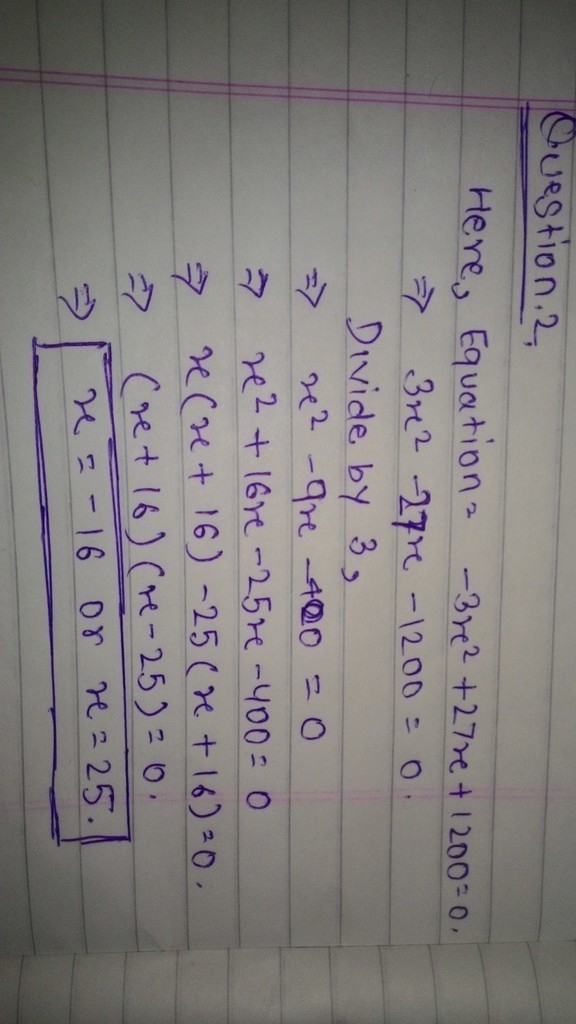 Question.2,
Here, Equation = -3x² + 27x + 1200 = 0.
⇒ 3x² - 27x - 1200 = 0.
Divide by 3,
⇒ x² - 9x - 400 = 0
⇒ x² + 16x - 25x - 400 = 0
⇒ x(x + 16) - 25(x + 16) = 0.
⇒ (x + 16)(x - 25) = 0.
⇒ x = -16 or x = 25.